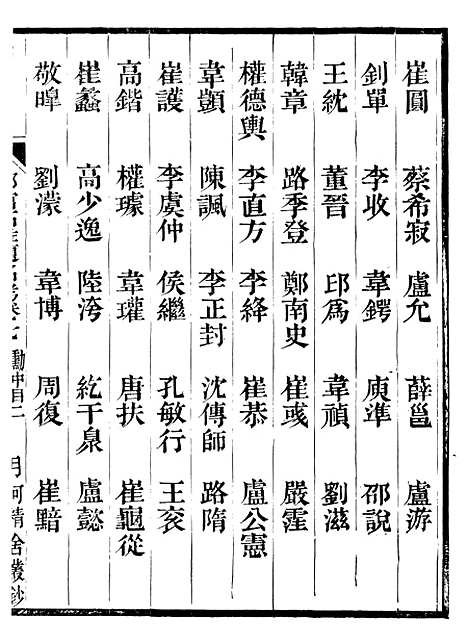 崔圓　蔡希寂　盧允　薛邕　盧游
釗單　李收　韋鍔　庾準　邵說
王統　董晉　邱爲　韋禎　劉滋
韓章　路季登　鄭南史　崔彧　嚴霆
權德輿　李直方　李絳　崔恭　盧公憲
韋顗　陳諷　李正封　沈傳師　路隋
崔護　李虞仲　侯繼　孔敏行　王袞
高鍇　權璩　韋瓘　唐扶　崔龜從
崔蠡　高少逸　陸洿　紇干泉　盧懿
敬暤　劉濛　韋博　周復　崔黯
勳中
月河精舍叢鈔